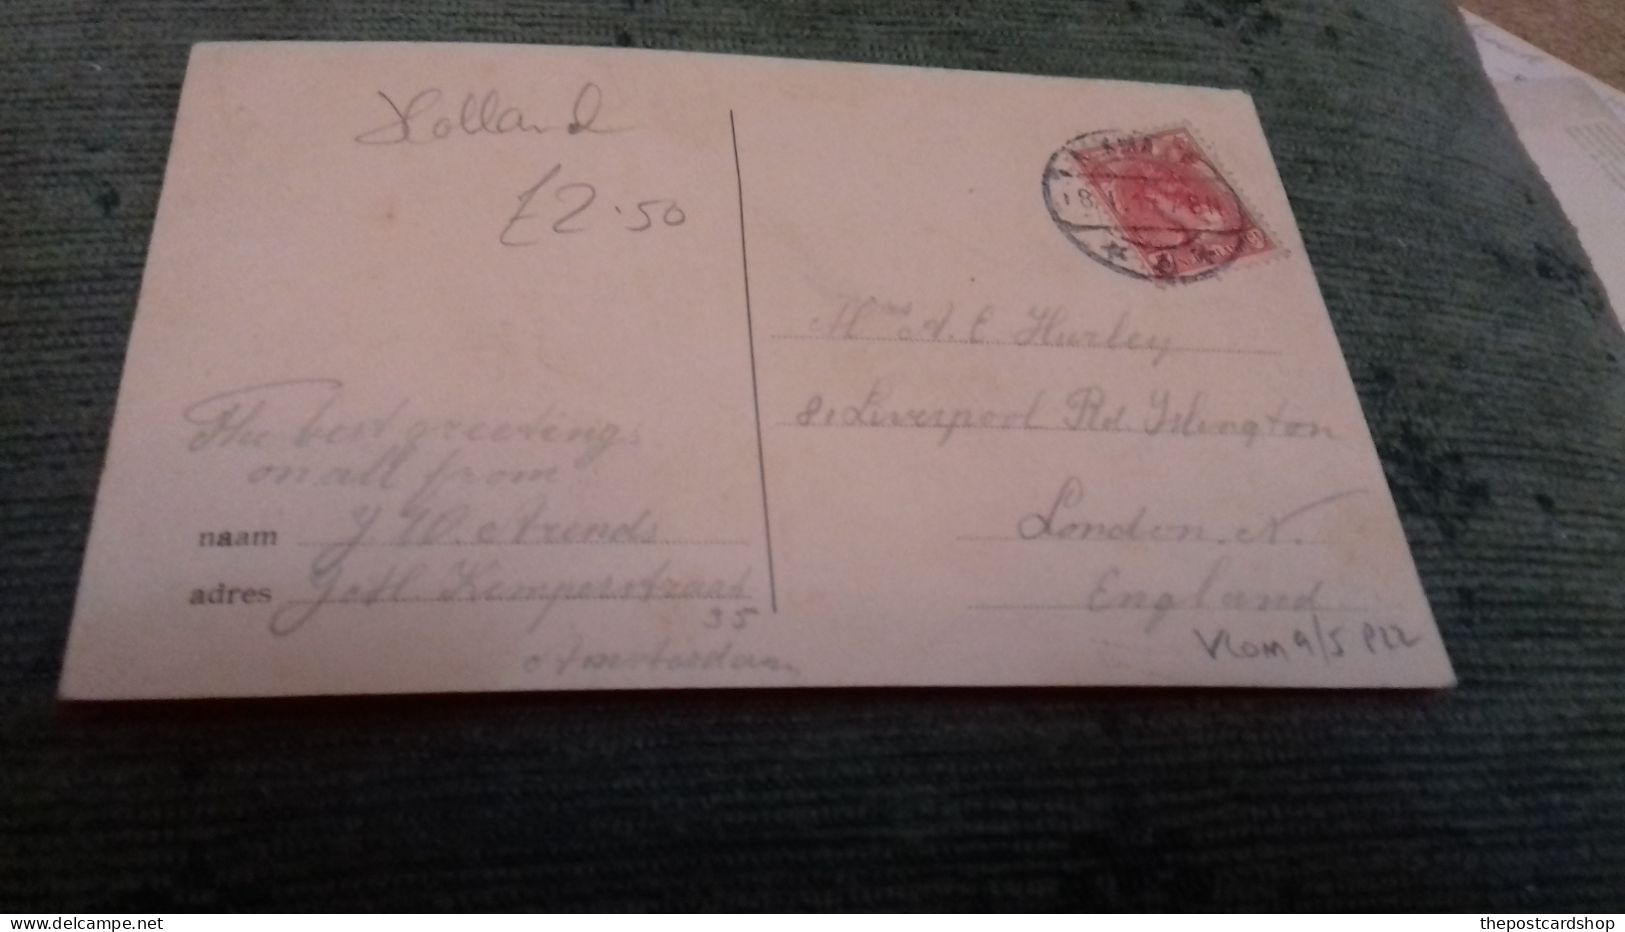 Holland
£2.50
The best greetings
on all from
naam J W. Arends
adres Kemperstraat
35
Amsterdam
Mrs A. E. Hurley
81 Liverpool Rd. Islington
London. N.
England
9/5 P22
delcampe.net
thepostcardshop